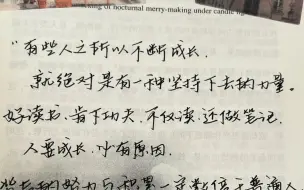 of nocturnal merry-making under candle lig
“有些人之所以不断成长，
就绝对是有一种坚持下去的力量。
好读书，肯下功夫，不仅读，还做笔记。
人要成长，必有原因，
背后的努力与积累一定数倍于普通人